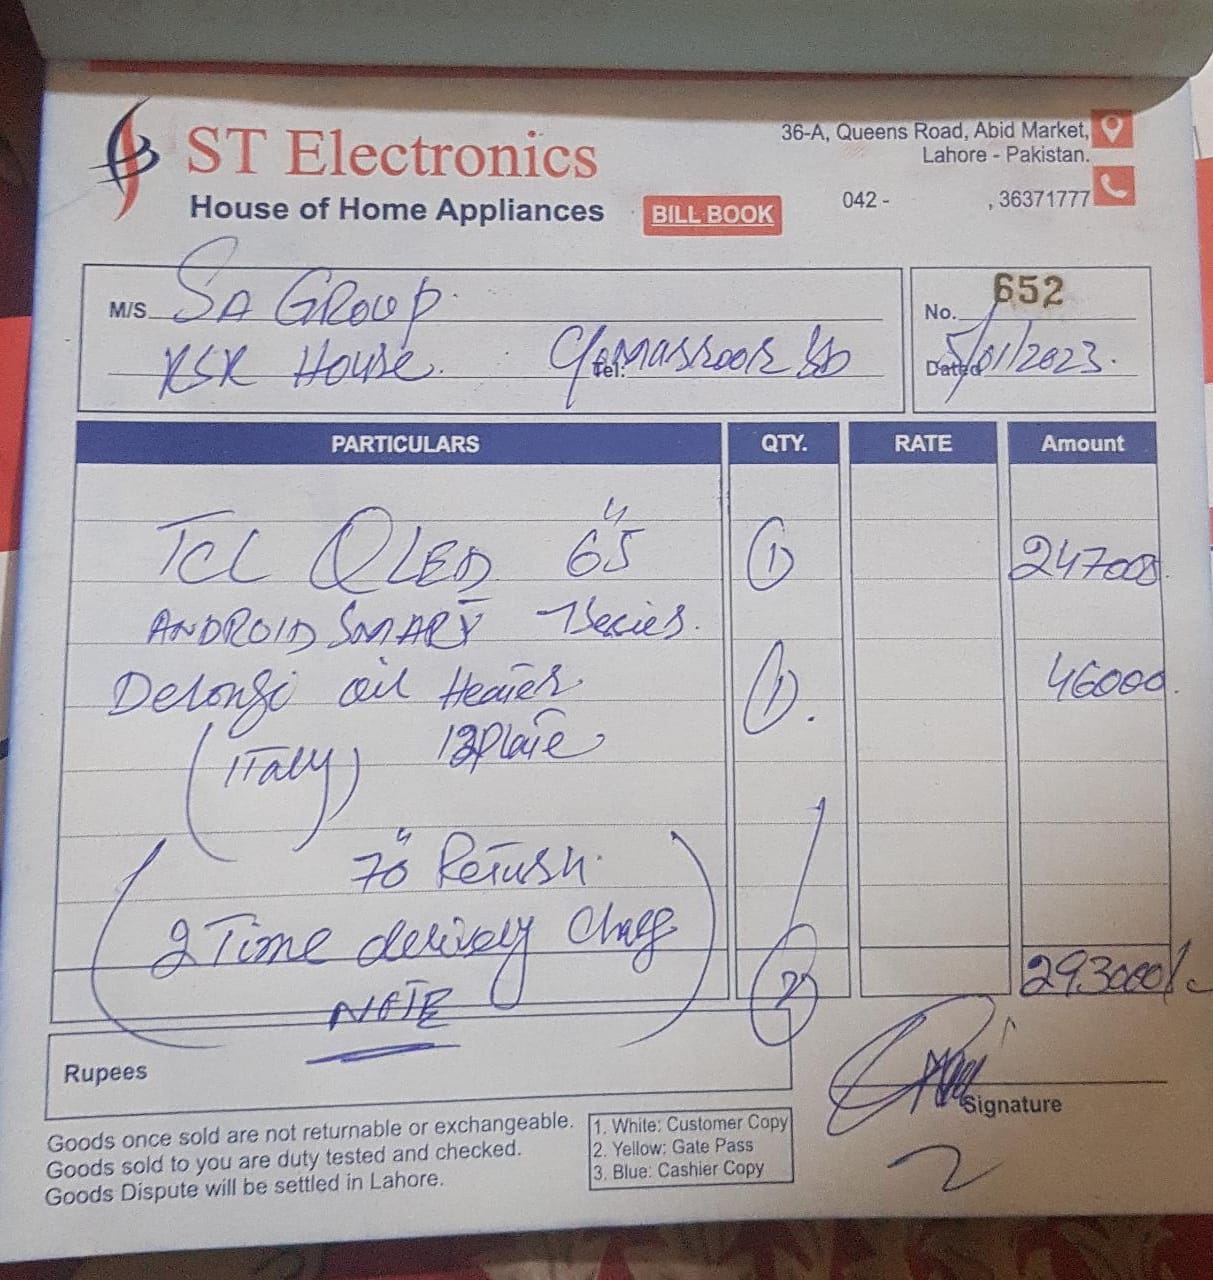 ST Electronics
House of Home Appliances
BILL BOOK
36-A, Queens Road, Abid Market,
Lahore - Pakistan.
042 - , 36371777
M/S. SA GROUP.
KSK House. Tel:
No. 652
Dated 5/01/2023.
PARTICULARS QTY. RATE Amount
TCL QLED 65" 1 247000.
ANDROID SMART 7 Series.
Delongi oil Heater 1. 46000.
(ITaly) 13 Plate
70" Return.
2 Time delivery Charg
2 293000/-
NOTE
Rupees
Signature
2
Goods once sold are not returnable or exchangeable.
Goods sold to you are duty tested and checked.
Goods Dispute will be settled in Lahore.
1. White: Customer Copy
2. Yellow: Gate Pass
3. Blue: Cashier Copy